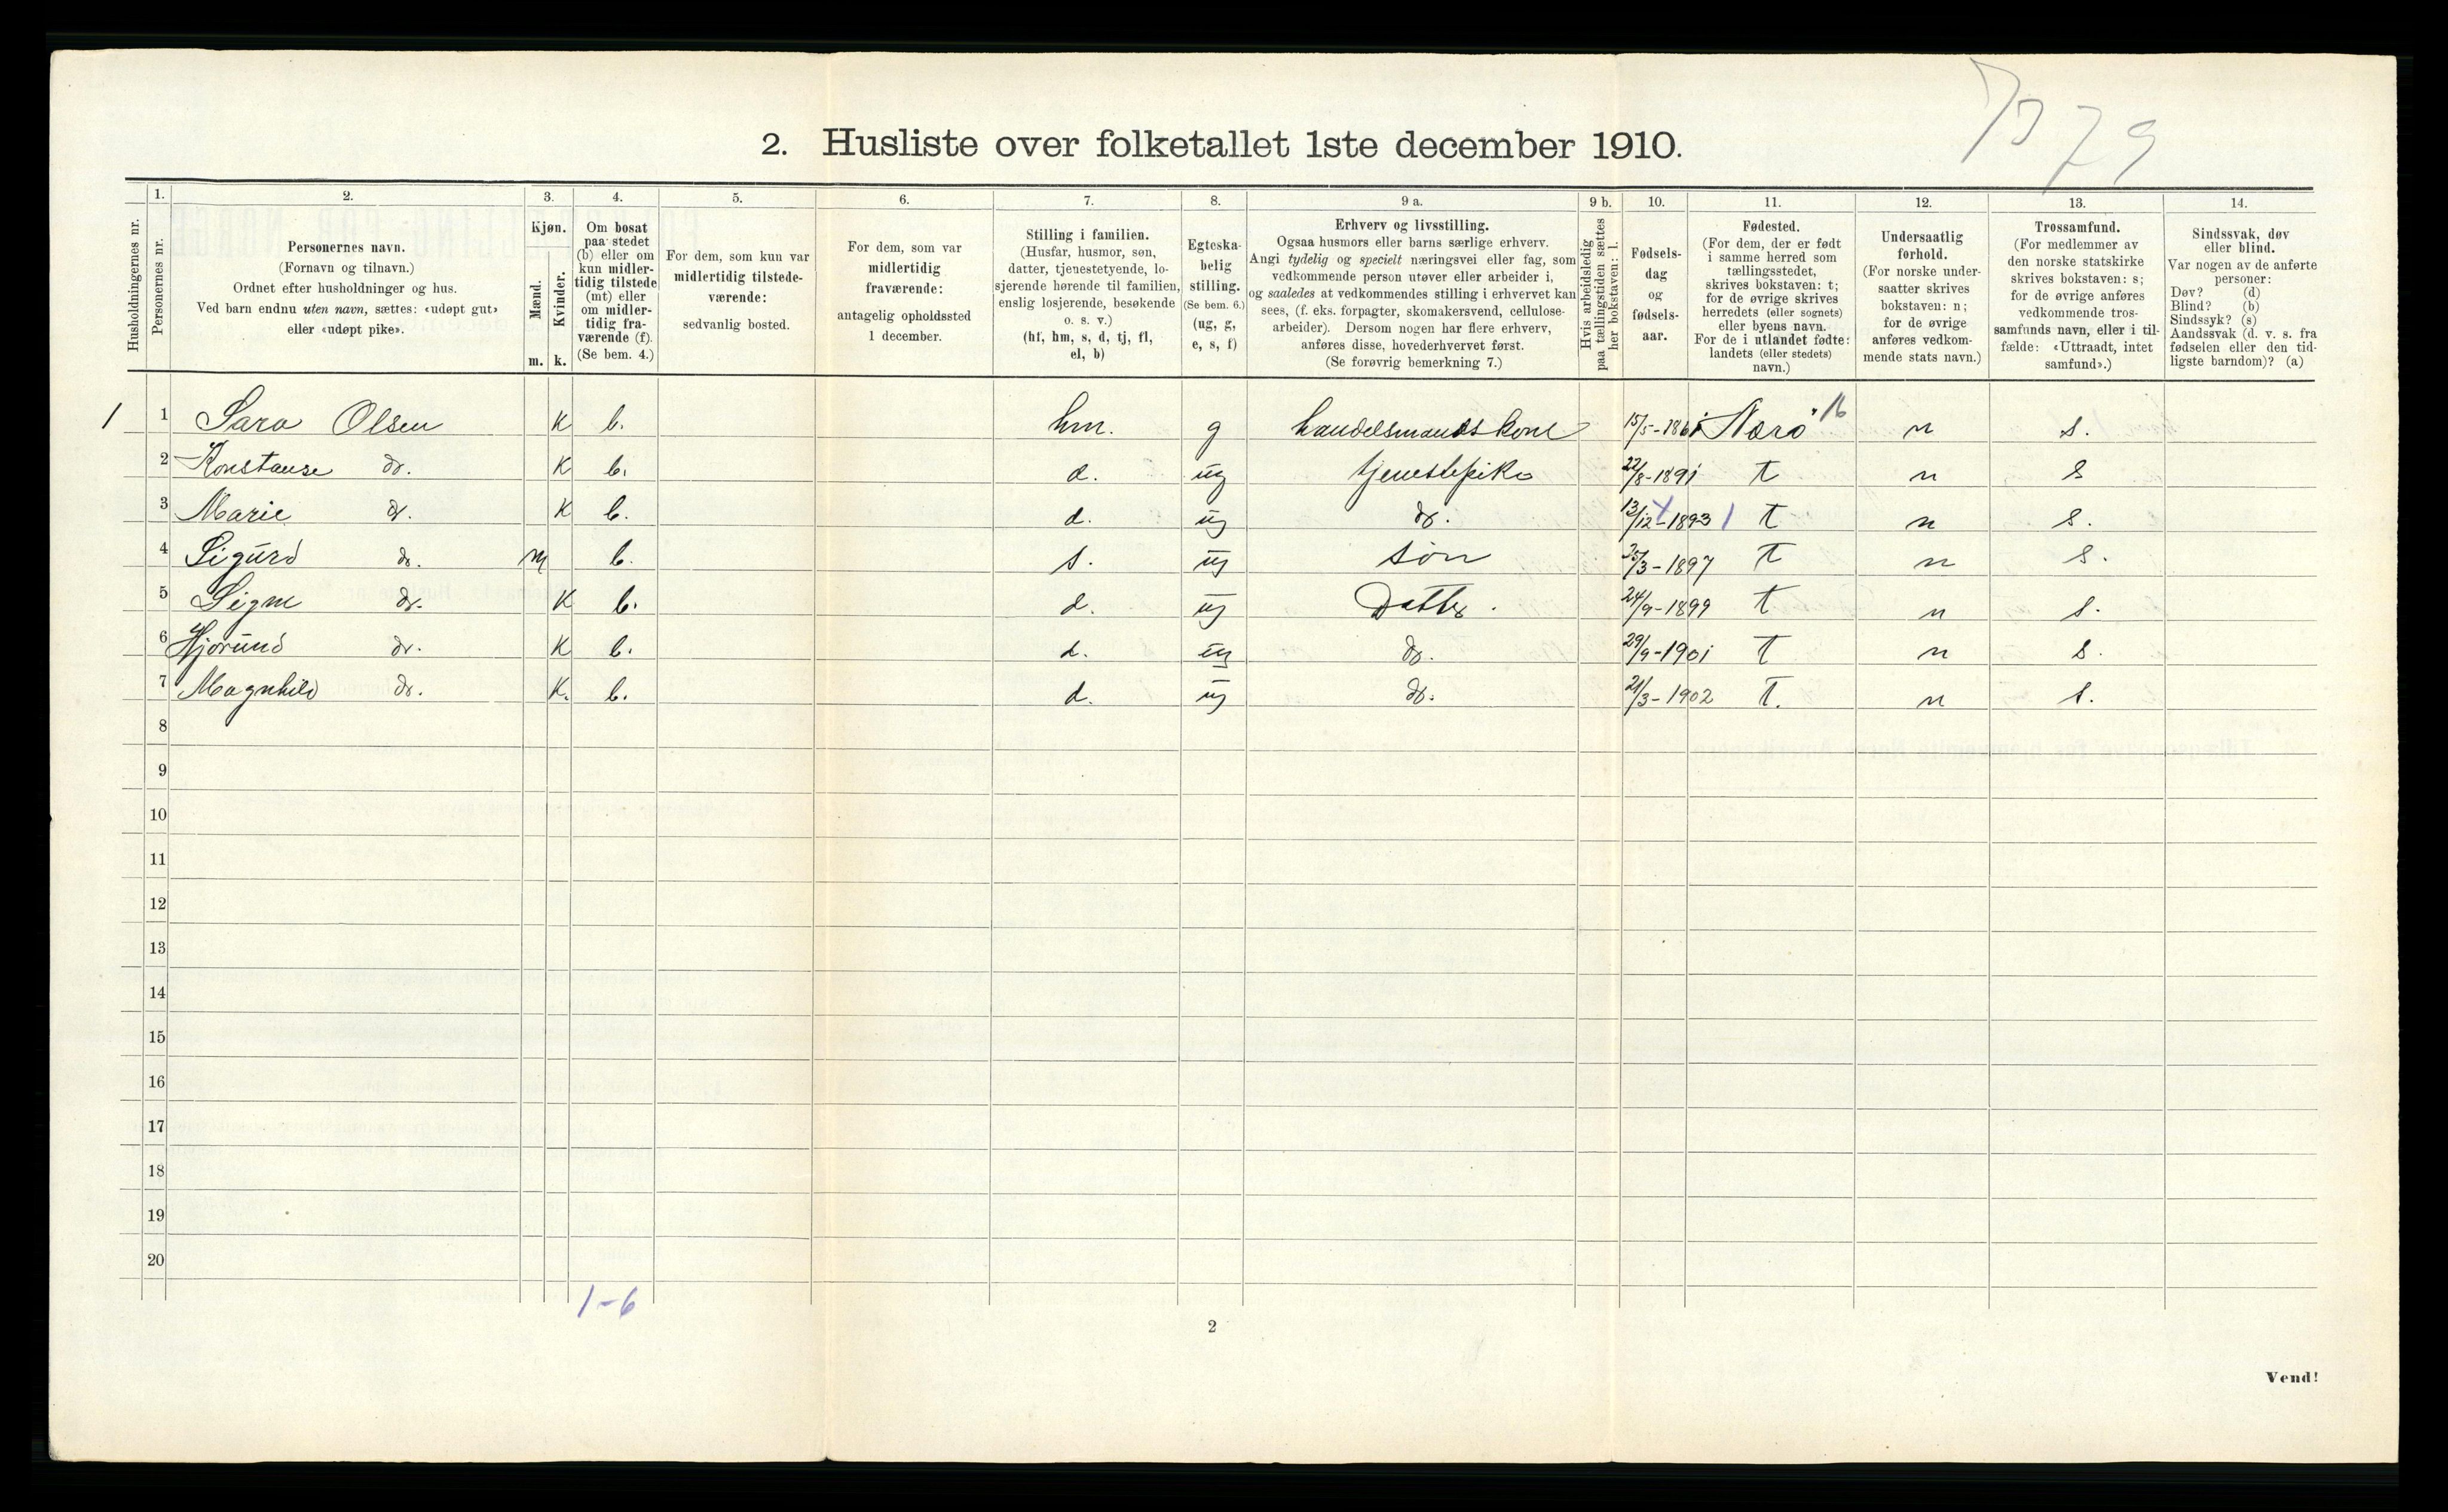 2. Husliste over folketallet 1ste december 1910.
Husholdningernes nr.
1. Personernes nr.
2. Personernes navn.
(Fornavn og tilnavn.)
Ordnet efter husholdninger og hus.
Ved barn endnu uten navn, sættes: «udøpt gut»
eller «udøpt pike».
3. Kjøn.
Mænd. m.
Kvinder. k.
4. Om bosat
paa stedet
(b) eller om
kun midler-
tidig tilstede
(mt) eller
om midler-
tidig fra-
værende (f).
(Se bem. 4.)
5. For dem, som kun var
midlertidig tilstede-
værende:
sedvanlig bosted.
6. For dem, som var
midlertidig
fraværende:
antagelig opholdssted
1 december.
7. Stilling i familien.
(Husfar, husmor, søn,
datter, tjenestetyende, lo-
sjerende hørende til familien,
enslig losjerende, besøkende
o. s. v.)
(hf, hm, s, d, tj, fl,
el, b)
8. Egteska-
belig
stilling.
(Se bem. 6.)
(ug, g,
e, s, f)
9 a. Erhverv og livsstilling.
Ogsaa husmors eller barns særlige erhverv.
Angi tydelig og specielt næringsvei eller fag, som
vedkommende person utøver eller arbeider i,
og saaledes at vedkommendes stilling i erhvervet kan
sees, (f. eks. forpagter, skomakersvend, cellulose-
arbeider). Dersom nogen har flere erhverv,
anføres disse, hovederhvervet først.
(Se forøvrig bemerkning 7.)
9 b. Hvis arbeidsledig
paa tællingstiden sættes
her bokstaven: l.
10. Fødsels-
dag
og
fødsels-
aar.
11. Fødested.
(For dem, der er født
i samme herred som
tællingsstedet,
skrives bokstaven: t;
for de øvrige skrives
herredets (eller sognets)
eller byens navn.
For de i utlandet fødte:
landets (eller stedets)
navn.)
12. Undersaatlig
forhold.
(For norske under-
saatter skrives
bokstaven: n;
for de øvrige
anføres vedkom-
mende stats navn.)
13. Trossamfund.
(For medlemmer av
den norske statskirke
skrives bokstaven: s;
for de øvrige anføres
vedkommende tros-
samfunds navn, eller i til-
fælde: «Uttraadt, intet
samfund».)
14. Sindssvak, døv
eller blind.
Var nogen av de anførte
personer:
Døv? (d)
Blind? (b)
Sindssyk? (s)
Aandssvak (d. v. s. fra
fødselen eller den tid-
ligste barndom)? (a)
1 1 Sara Olsen K b. hm. g handelsmandskone 15/5-1861 Nærö 16 n s.
2 Konstanse do. K b. d. ug tjenestepike 22/8-1891 t n s
3 Marie do. K b. d. ug do. 13/12-1893 t n s.
4 Sigurd do. m b. s. ug søn 25/3-1897 t n s.
5 Signe do. K b. d. ug Datter. 24/9-1899 t n s.
6 Hjørund do. K b. d. ug do. 29/9-1901 t n s.
7 Magnhild do. K. b. d. ug do. 21/3-1902 t. n s.
8
9
10
11
12
13
14
15
16
17
18
19
20
1-6
2
Vend!